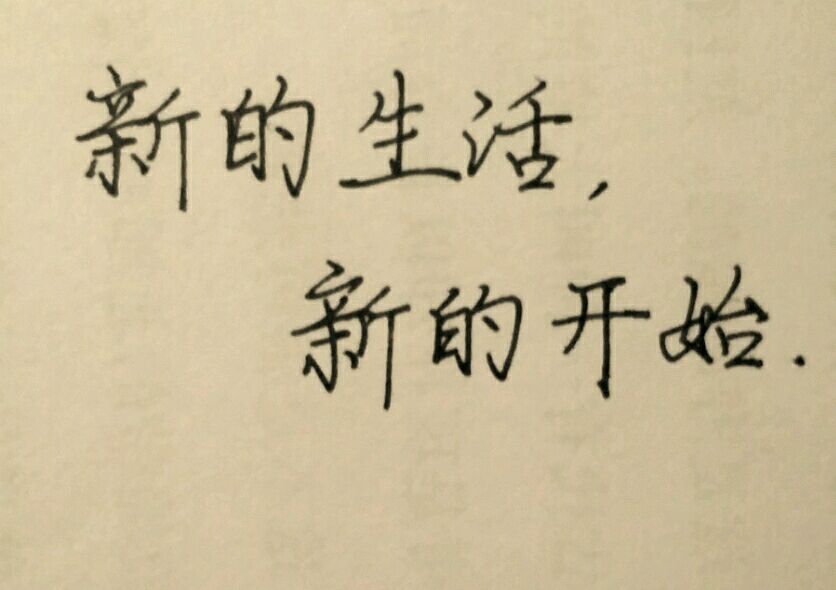 新的生活,
新的开始.